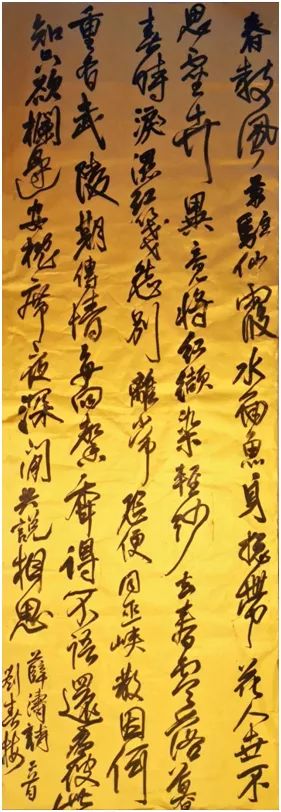 春教風景駐仙霞水面魚身總帶花人世不
思靈卉異竟將紅纈染輕紗去春零落暮
春時淚濕紅箋怨別離常恐便同巫峽散因何
重有武陵期傳情每向馨香得不語還應彼此
知只欲欄邊安枕席夜深閒共說相思
薛濤詩二首
劉春梅